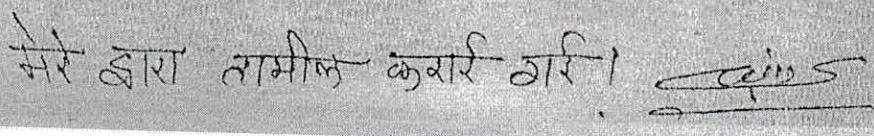 मेरे द्वारा तामील कराई गई।